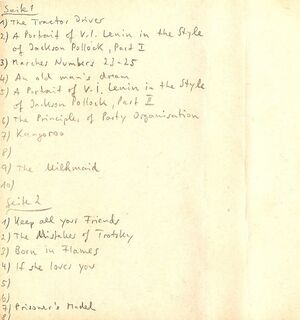 Seite 1
1) The Tractor Driver
2) A Portrait of V.I. Lenin in the Style
of Jackson Pollock, Part I
3) Marches Numbers 23-25
4) An old man's dream
5) A Portrait of V.I. Lenin in the Style
of Jackson Pollock, Part II
6) The Principles of Party Organisation
7) Kangoroo
8)
9) The Milkmaid
10)
Seite 2
1) Keep all your Friends
2) The Mistakes of Trotsky
3) Born in Flames
4) If she loves you
5)
6)
7) Prisoner's Model
8)